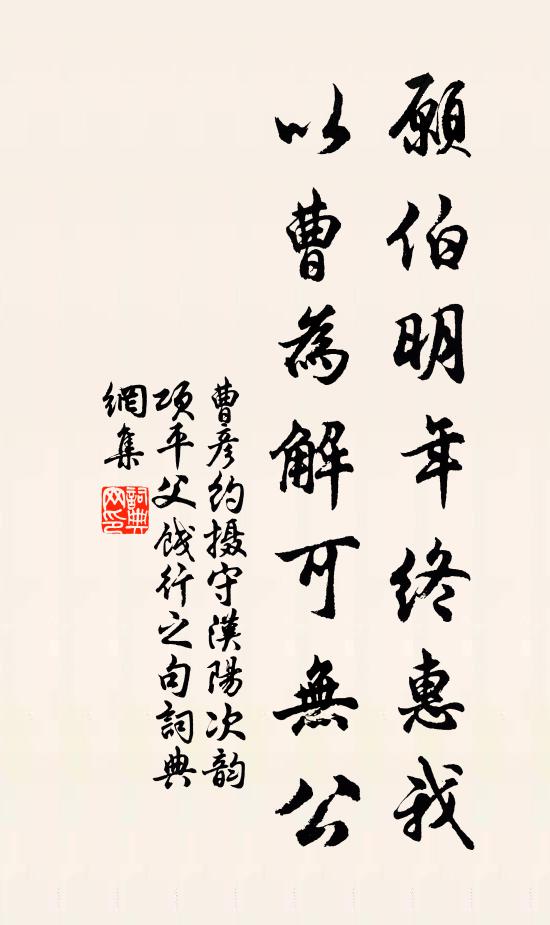 願伯明年終惠我
以曹為解可無公
曹彦約摄守漢陽次韵
項平父餞行之句詞典
網集
詞典網印